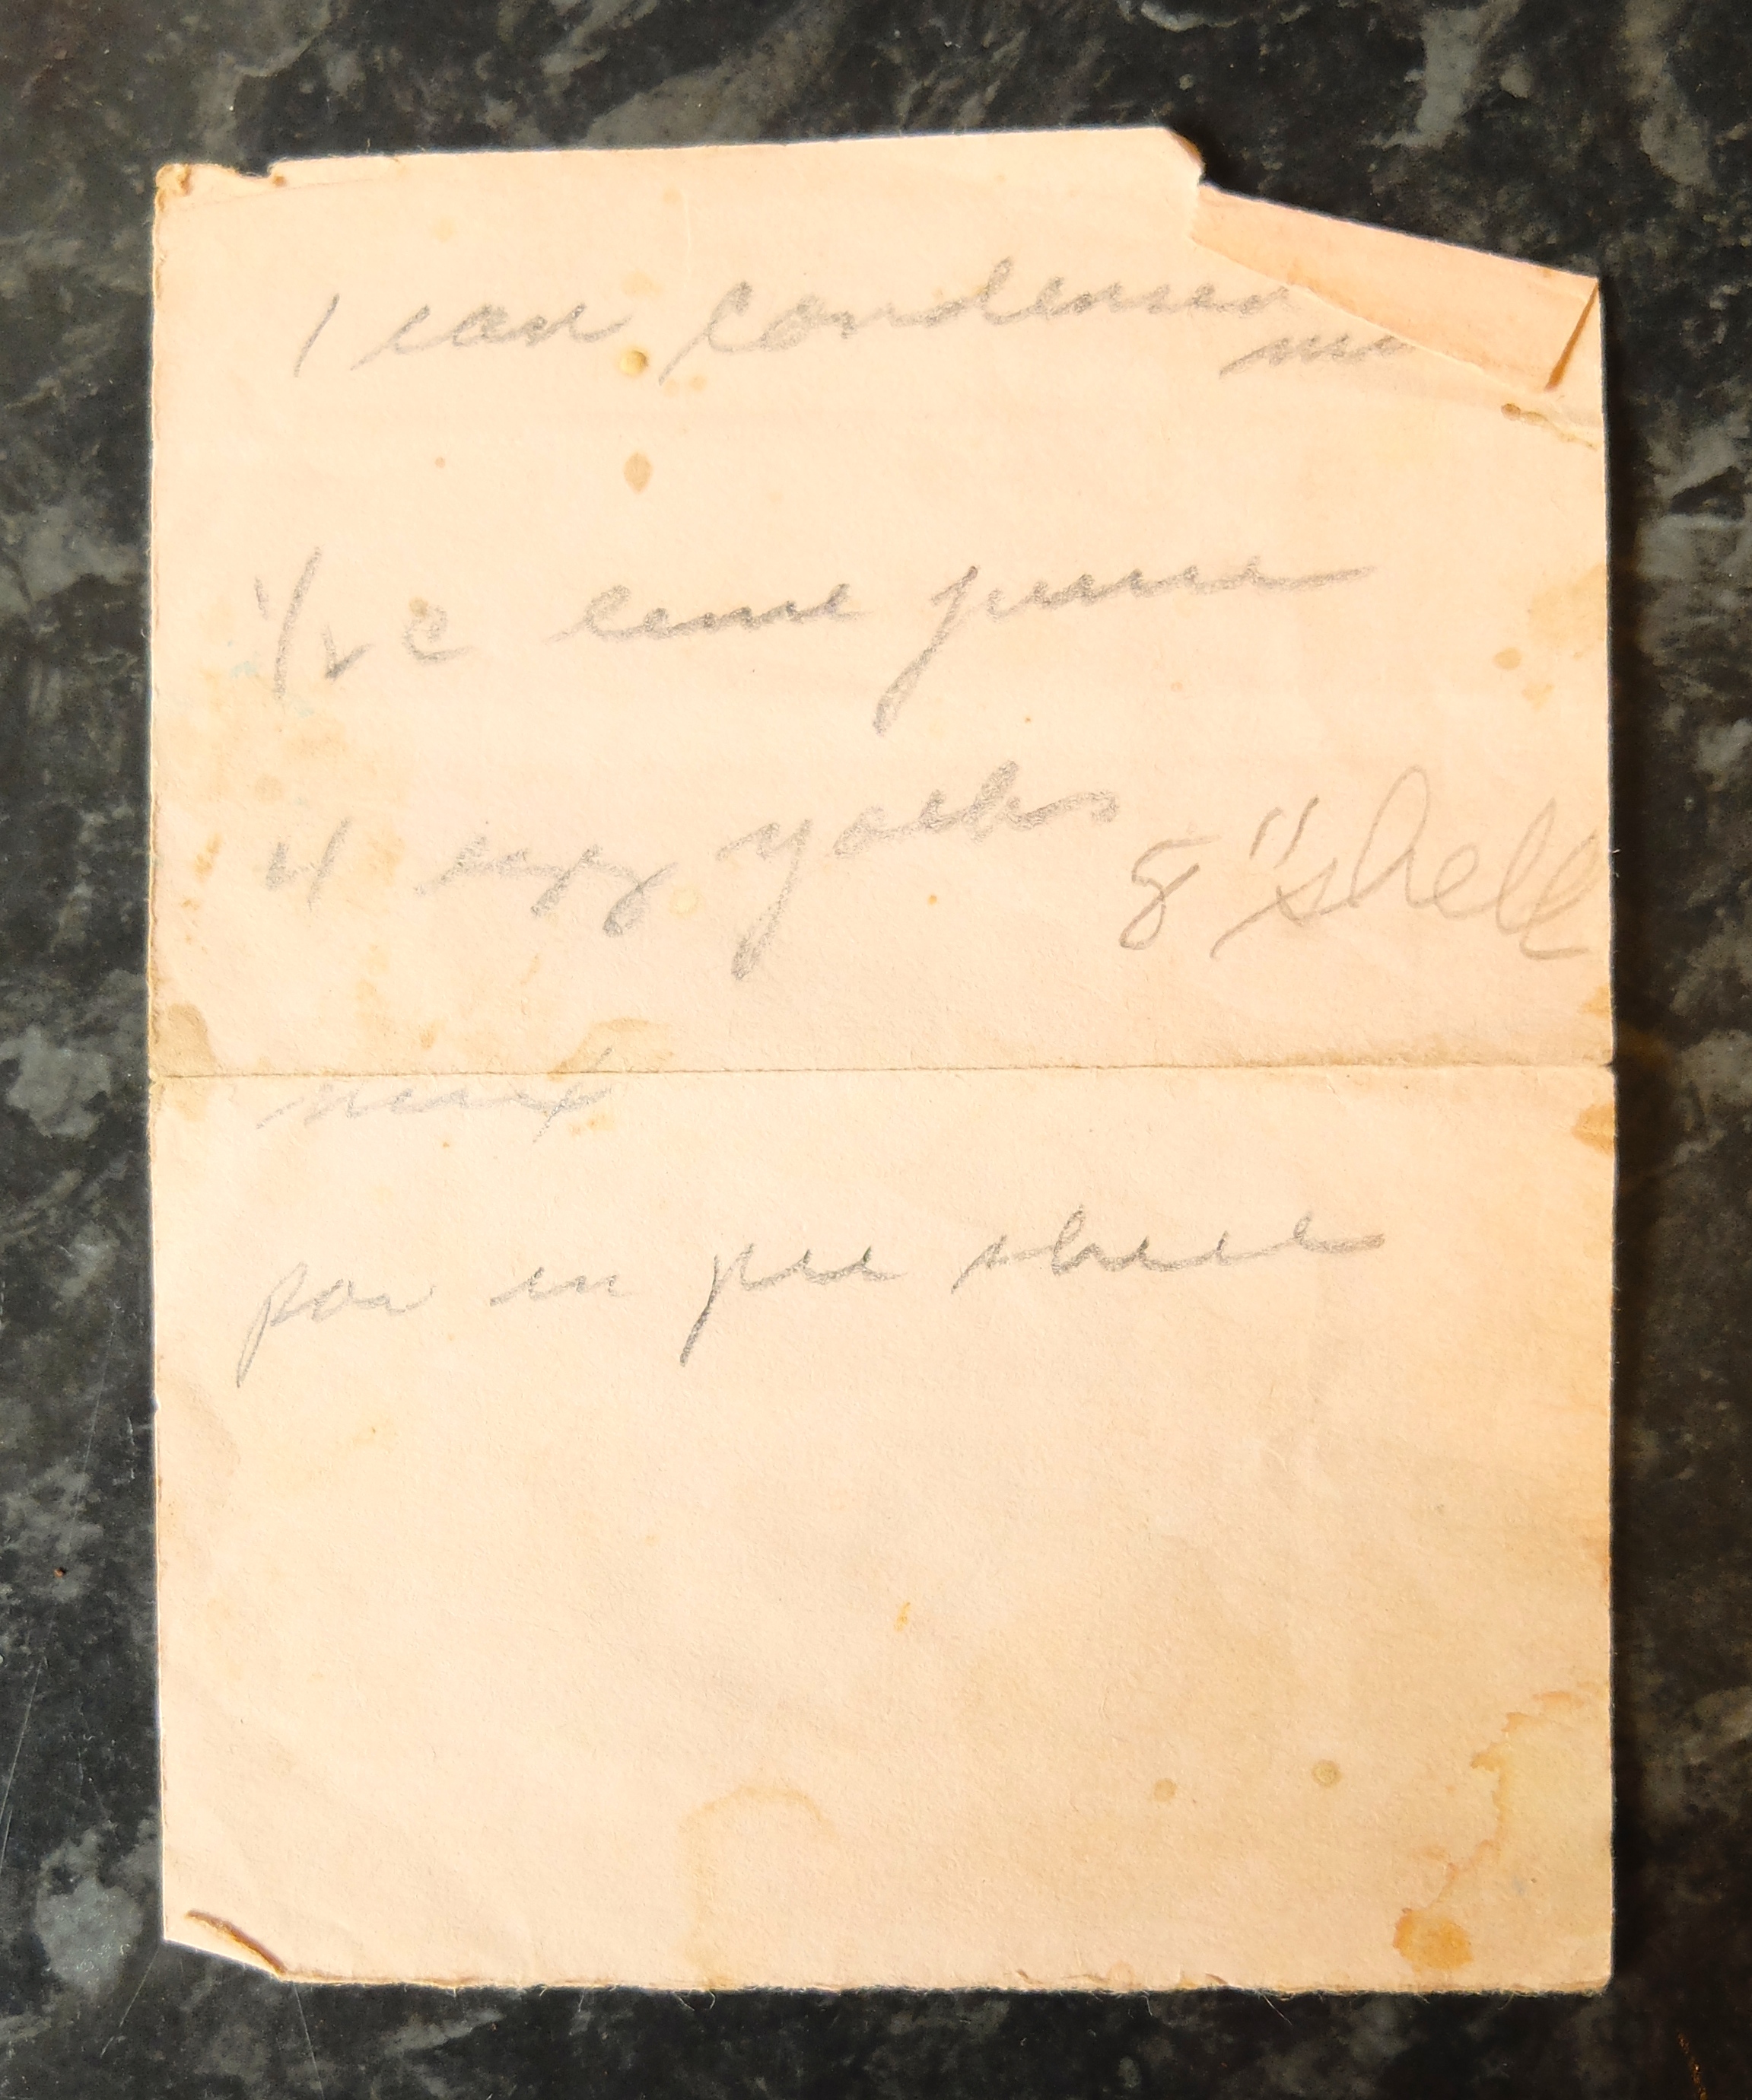 1 can condensed
1/2 c lime juice
4 egg yolks
8" shell
mix
pour in pie shell